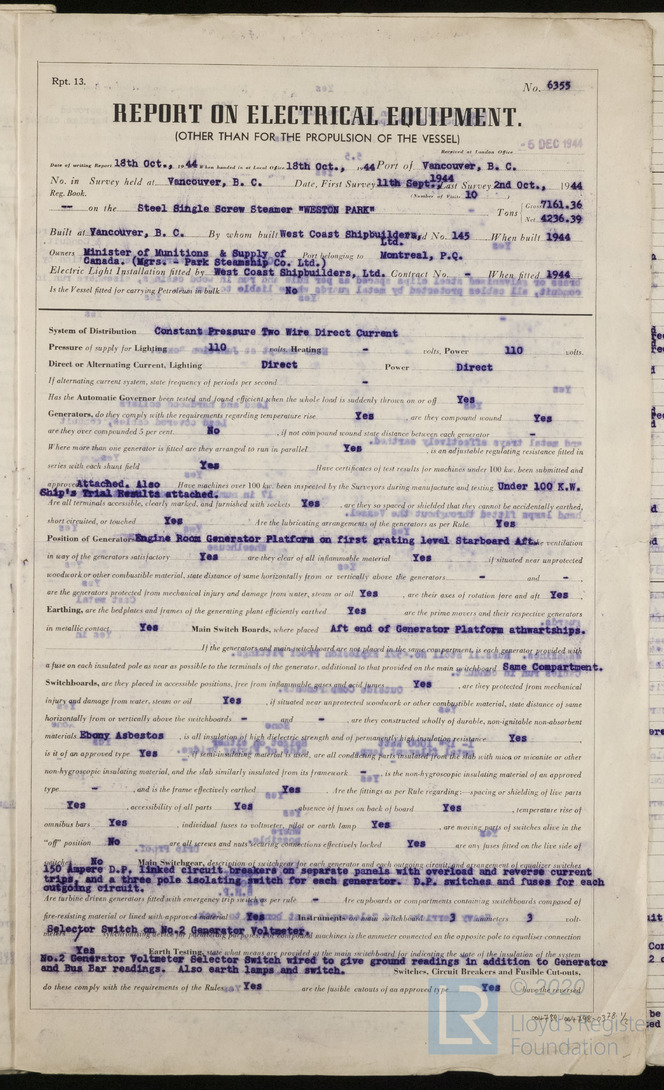 Rpt. 13.
No. 6355
REPORT ON ELECTRICAL EQUIPMENT.
(OTHER THAN FOR THE PROPULSION OF THE VESSEL)
Received at London Office
-6 DEC 1944
Date of writing Report 18th Oct., 1944 When handed in at Local Office 18th Oct., 1944 Port of Vancouver, B. C.
No. in Survey held at Vancouver, B. C. Date, First Survey 11th Sept., 1944 Last Survey 2nd Oct., 1944
Reg. Book. (Number of Visits 10 )
-- on the Steel Single Screw Steamer "WESTON PARK" Tons Gross 7161.36
Net 4236.39
Built at Vancouver, B. C. By whom built West Coast Shipbuilders, Ltd. Yard No. 145 When built 1944
Owners Minister of Munitions & Supply of Canada. (Mgrs. - Park Steamship Co. Ltd.) Port belonging to Montreal, P.Q.
Electric Light Installation fitted by West Coast Shipbuilders, Ltd. Contract No. - When fitted 1944
Is the Vessel fitted for carrying Petroleum in bulk No
System of Distribution Constant Pressure Two Wire Direct Current
Pressure of supply for Lighting 110 volts, Heating - volts, Power 110 volts.
Direct or Alternating Current, Lighting Direct Power Direct
If alternating current system, state frequency of periods per second -
Has the Automatic Governor been tested and found efficient when the whole load is suddenly thrown on or off Yes
Generators, do they comply with the requirements regarding temperature rise Yes , are they compound wound Yes
are they over compounded 5 per cent. No , if not compound wound state distance between each generator -
Where more than one generator is fitted are they arranged to run in parallel Yes , is an adjustable regulating resistance fitted in
series with each shunt field Yes Have certificates of test results for machines under 100 kw. been submitted and
approved Attached. Also Ship's Trial Results attached. Have machines over 100 kw. been inspected by the Surveyors during manufacture and testing Under 100 K.W.
Are all terminals accessible, clearly marked, and furnished with sockets Yes , are they so spaced or shielded that they cannot be accidentally earthed,
short circuited, or touched Yes Are the lubricating arrangements of the generators as per Rule Yes
Position of Generators Engine Room Generator Platform on first grating level Starboard Aft. , is the ventilation
in way of the generators satisfactory Yes are they clear of all inflammable material Yes if situated near unprotected
woodwork or other combustible material, state distance of same horizontally from or vertically above the generators - and -
are the generators protected from mechanical injury and damage from water, steam or oil Yes , are their axes of rotation fore and aft Yes
Earthing, are the bedplates and frames of the generating plant efficiently earthed Yes are the prime movers and their respective generators
in metallic contact Yes Main Switch Boards, where placed Aft end of Generator Platform athwartships.
If the generators and main switchboard are not placed in the same compartment, is each generator provided with
a fuse on each insulated pole as near as possible to the terminals of the generator, additional to that provided on the main switchboard Same Compartment.
Switchboards, are they placed in accessible positions, free from inflammable gases and acid fumes Yes , are they protected from mechanical
injury and damage from water, steam or oil Yes , if situated near unprotected woodwork or other combustible material, state distance of same
horizontally from or vertically above the switchboards - and - , are they constructed wholly of durable, non-ignitable non-absorbent
materials Ebony Asbestos , is all insulation of high dielectric strength and of permanently high insulation resistance Yes
is it of an approved type Yes if semi-insulating material is used, are all conducting parts insulated from the slab with mica or micanite or other
non-hygroscopic insulating material, and the slab similarly insulated from its framework - , is the non-hygroscopic insulating material of an approved
type - , and is the frame effectively earthed Yes Are the fittings as per Rule regarding:—spacing or shielding of live parts
Yes , accessibility of all parts Yes , absence of fuses on back of board Yes , temperature rise of
omnibus bars Yes , individual fuses to voltmeter, pilot or earth lamp Yes , are moving parts of switches alive in the
"off" position No are all screws and nuts securing connections effectively locked Yes are any fuses fitted on the live side of
switches No Main Switchgear, description of switchgear for each generator and each outgoing circuit and arrangement of equaliser switches
150 Ampere D.P. linked circuit breakers on separate panels with overload and reverse current
trips, and a three pole isolating switch for each generator. D.P. switches and fuses for each
outgoing circuit.
Are turbine driven generators fitted with emergency trip switches per rule - Are cupboards or compartments containing switchboards composed of
fire-resisting material or lined with approved material Yes Instruments on main switchboard 3 ammeters 3 volt-
Selector Switch on No.2 Generator Voltmeter.
machines is the ammeter connected on the opposite pole to equaliser connection
Yes Earth Testing, state what means are provided at the main switchboard for indicating the state of the insulation of the system
No.2 Generator Voltmeter Selector Switch wired to give ground readings in addition to Generator
and Bus Bar readings. Also earth lamps and switch. Switches, Circuit Breakers and Fusible Cut-outs,
do these comply with the requirements of the Rules Yes are the fusible cutouts of an approved type Yes have the reversed
© 2020
LR
Lloyd's Register
Foundation